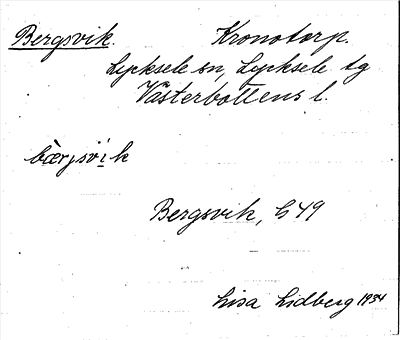 Bergsvik. Kronotorp.
Lycksele sn, Lycksele tg
Västerbottens l.
bærjsvik
Bergsvik, b 49
Lisa Lidberg 1934